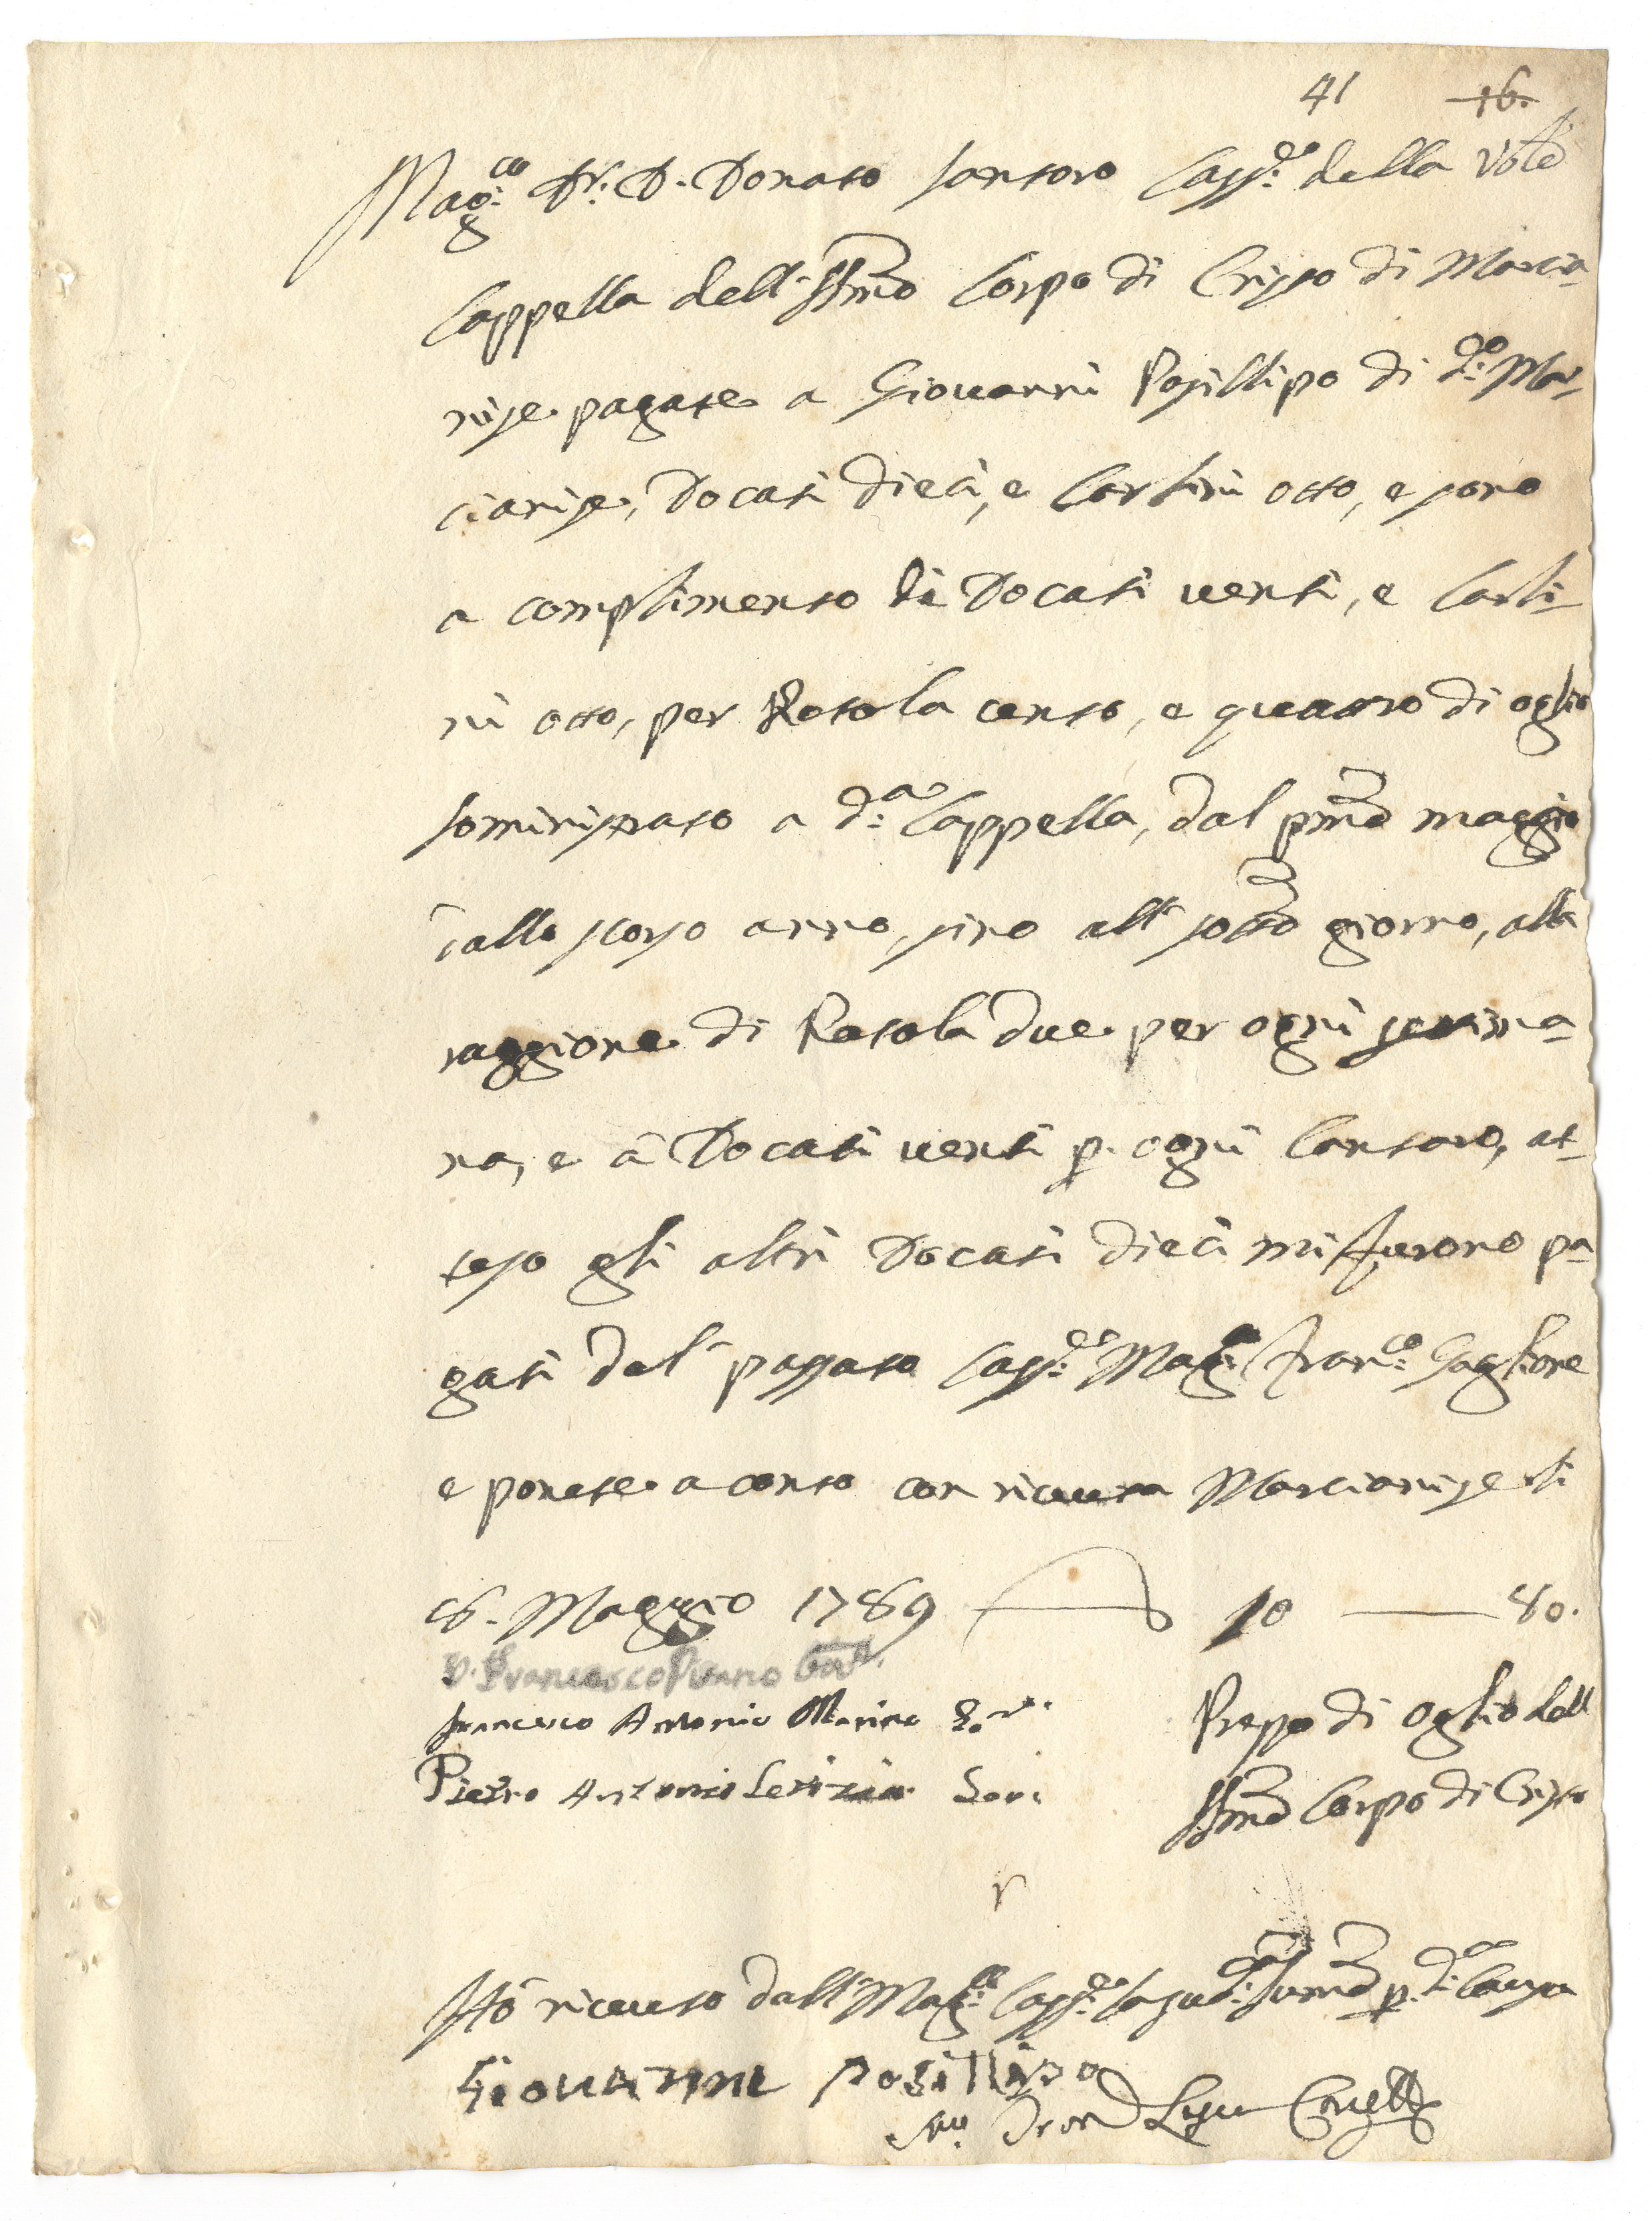 41 16.
Mag:co Dr. D. Donato Santoro Cass:o della Vble
Cappella dell' SSmo Corpo di Cristo di Marcia-
nise pagate a Giovanni Posillipo di d:o Mar-
cianise, Docati dieci, e Carlini otto, e sono
a complimento di Docati venti, e Carli-
ni otto, per Rotola cento, e quattro di oglio
somministrato a d:a Cappella, dal pmo maggio
dallo scorso anno, sino all' sotto giorno, alla
raggione di Rotola due per ogni settima-
na, e à Docati venti p. ogni Cantaro, at-
teso gli altri Docati dieci mi furono pa-
gati dal passato Cass:o Mag:co Fran:co Gaglione
e ponete a conto con ricevuta Marcianise li
16. Maggio 1789 10 — 80.
D. Francesco Pivano Gov.
Francesco Antonio Marino Gov.
Pietro Antonio Letizia Gov.
Prezzo di oglio dell
SSmo Corpo di Cristo
Hò ricevuto dall' Mag:co Cass:o la sud:a suma p. d:a Causa
Giovanne Posillipo